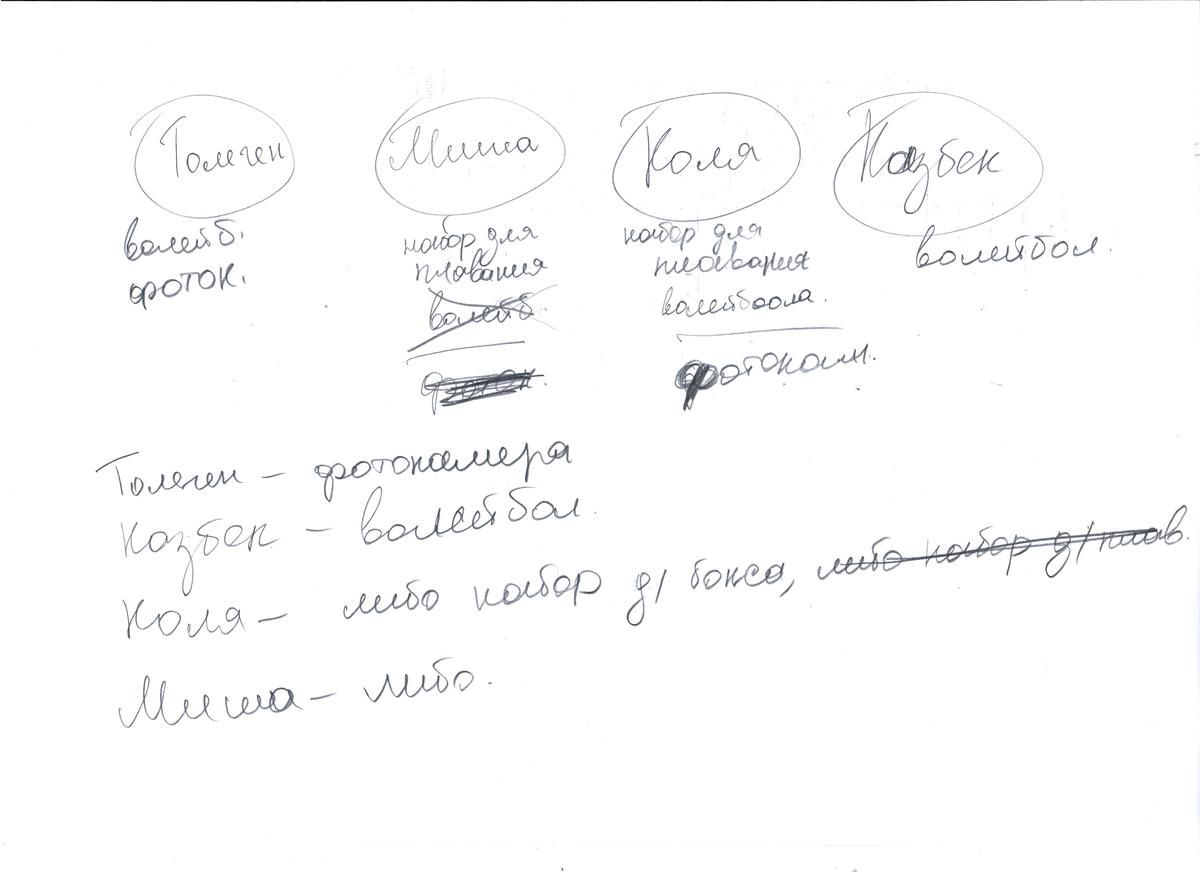 Толеген Миша Коля Казбек
волейб. набор для набор для волейбол.
фоток. плавания плавания
волейб. волейбоола.
фоток. фотокам.
Толеген – фотокамера
Казбек – волейбол.
Коля – либо набор д/ бокса, либо набор д/ плав.
Миша – либо.